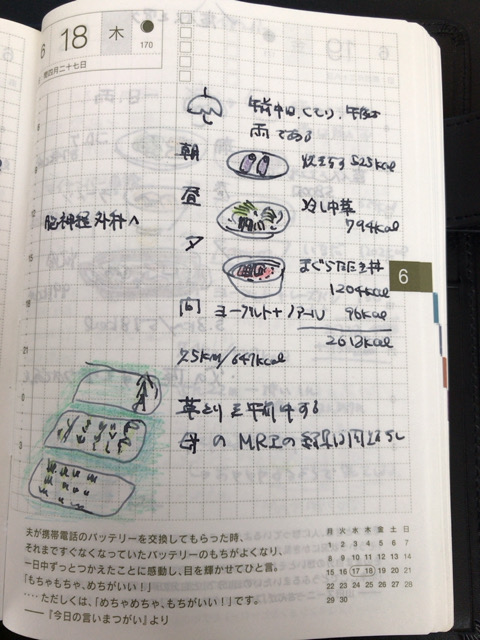 6 18 木
170
旧四月二十七日
午前中はくもり、午後は
雨である
朝 炊き込み 525kcal
昼 冷し中華
794kcal
脳神経外科へ
夕 まぐろたたき丼
1204kcal
6
間 ヨーグルト+ 96kcal
2613kcal
7.5km/647kcal
草とりを午前中する
母のMRIの結果は問題なし
夫が携帯電話のバッテリーを交換してもらった時、
それまですぐなくなっていたバッテリーのもちがよくなり、
一日中ずっとつかえたことに感動し、目を輝かせてひと言。
「もちゃもちゃ、めちがいい!」
‥‥ただしくは、「めちゃめちゃ、もちがいい!」です。
——『今日の言いまつがい』より
月 火 水 木 金 土 日
1 2 3 4 5 6 7
8 9 10 11 12 13 14
15 16 17 18 19 20 21
22 23 24 25 26 27 28
29 30